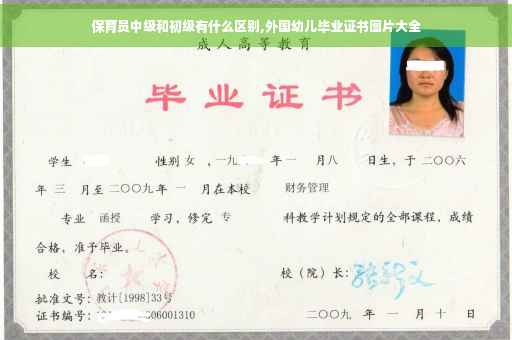 保育员中级和初级有什么区别,外国幼儿毕业证书图片大全
成人高等教育
毕业证书
学生 性别 女 ,一九 年 一 月八 日生，于 二〇〇六
年 三 月至 二〇〇九 年 一 月在本校 财务管理
专业 函授 学习，修完 专 科教学计划规定的全部课程，成绩
合格，准予毕业。
校 名： 校（院）长：
批准文号：教计[1998]33号
证书编号： 06001310 二〇〇九 年 一 月 十 日